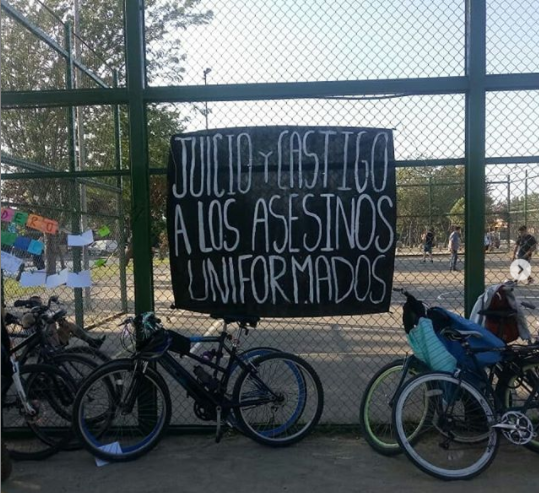 JUICIO Y CASTIGO
A LOS ASESINOS
UNIFORMADOS